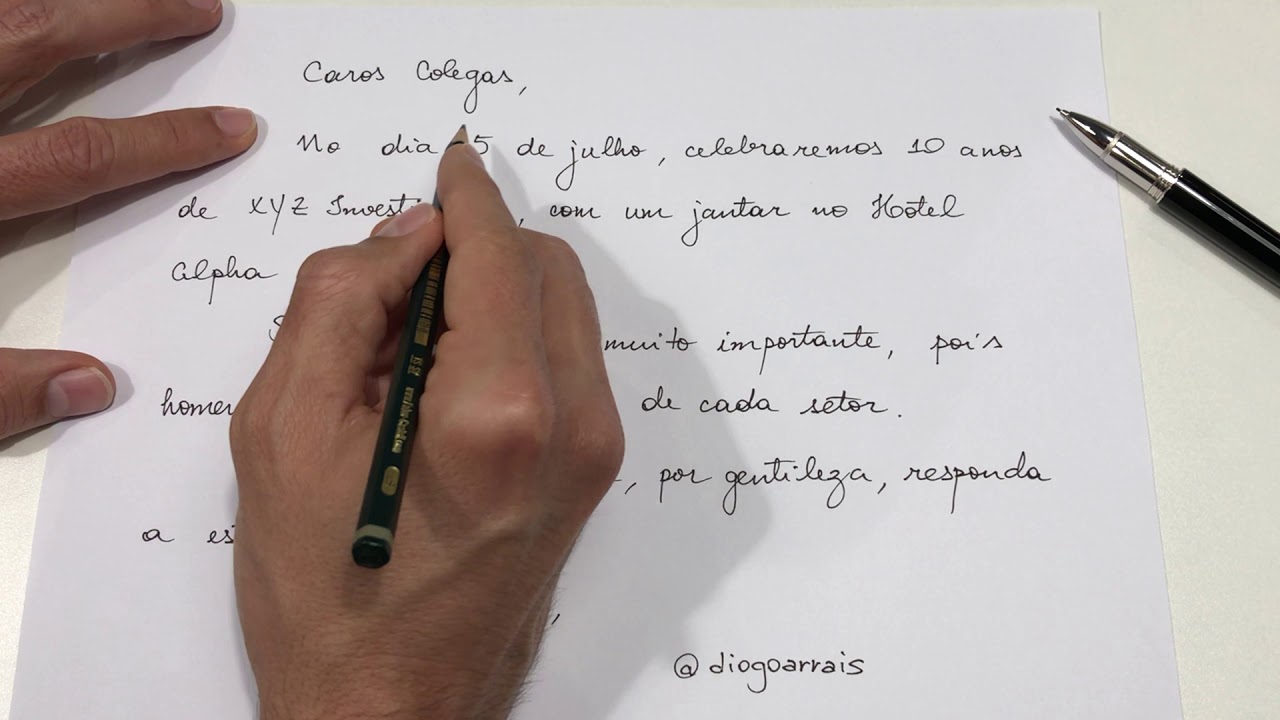 Caros Colegas,
No dia 5 de julho, celebraremos 10 anos
de XYZ com um jantar no Hotel
Alpha
muito importante, pois
de cada setor.
, por gentileza, responda
a
@diogoarrais